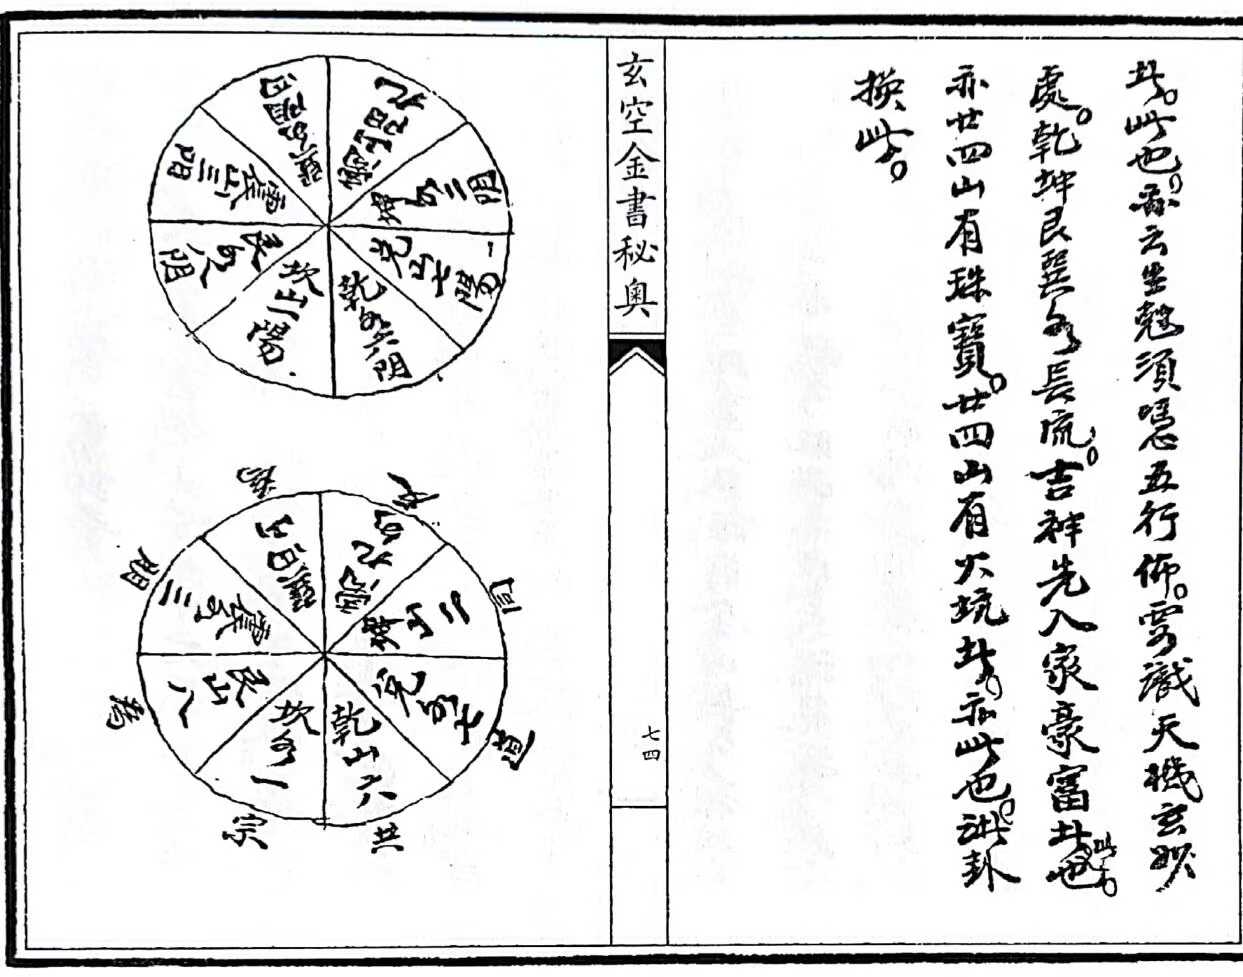 共。此也。亦云生剋須憑五行佈。要識天機玄妙
處。乾坤艮巽水長流。吉祥先入家豪富共也
亦廿四山有珠寶。廿四山有火坑共。亦此也。訣卦
換此。
玄空金書秘奧
七四
離山九
坤水二 陰
兌山七 陽
乾水六陰
坎山一陽
艮水八陰
震山三陽
巽
離水九
坤山二
兌水七
乾山六
坎水一
艮山八
震水三
巽山四
父
同
道
共
宗
為
朋
為